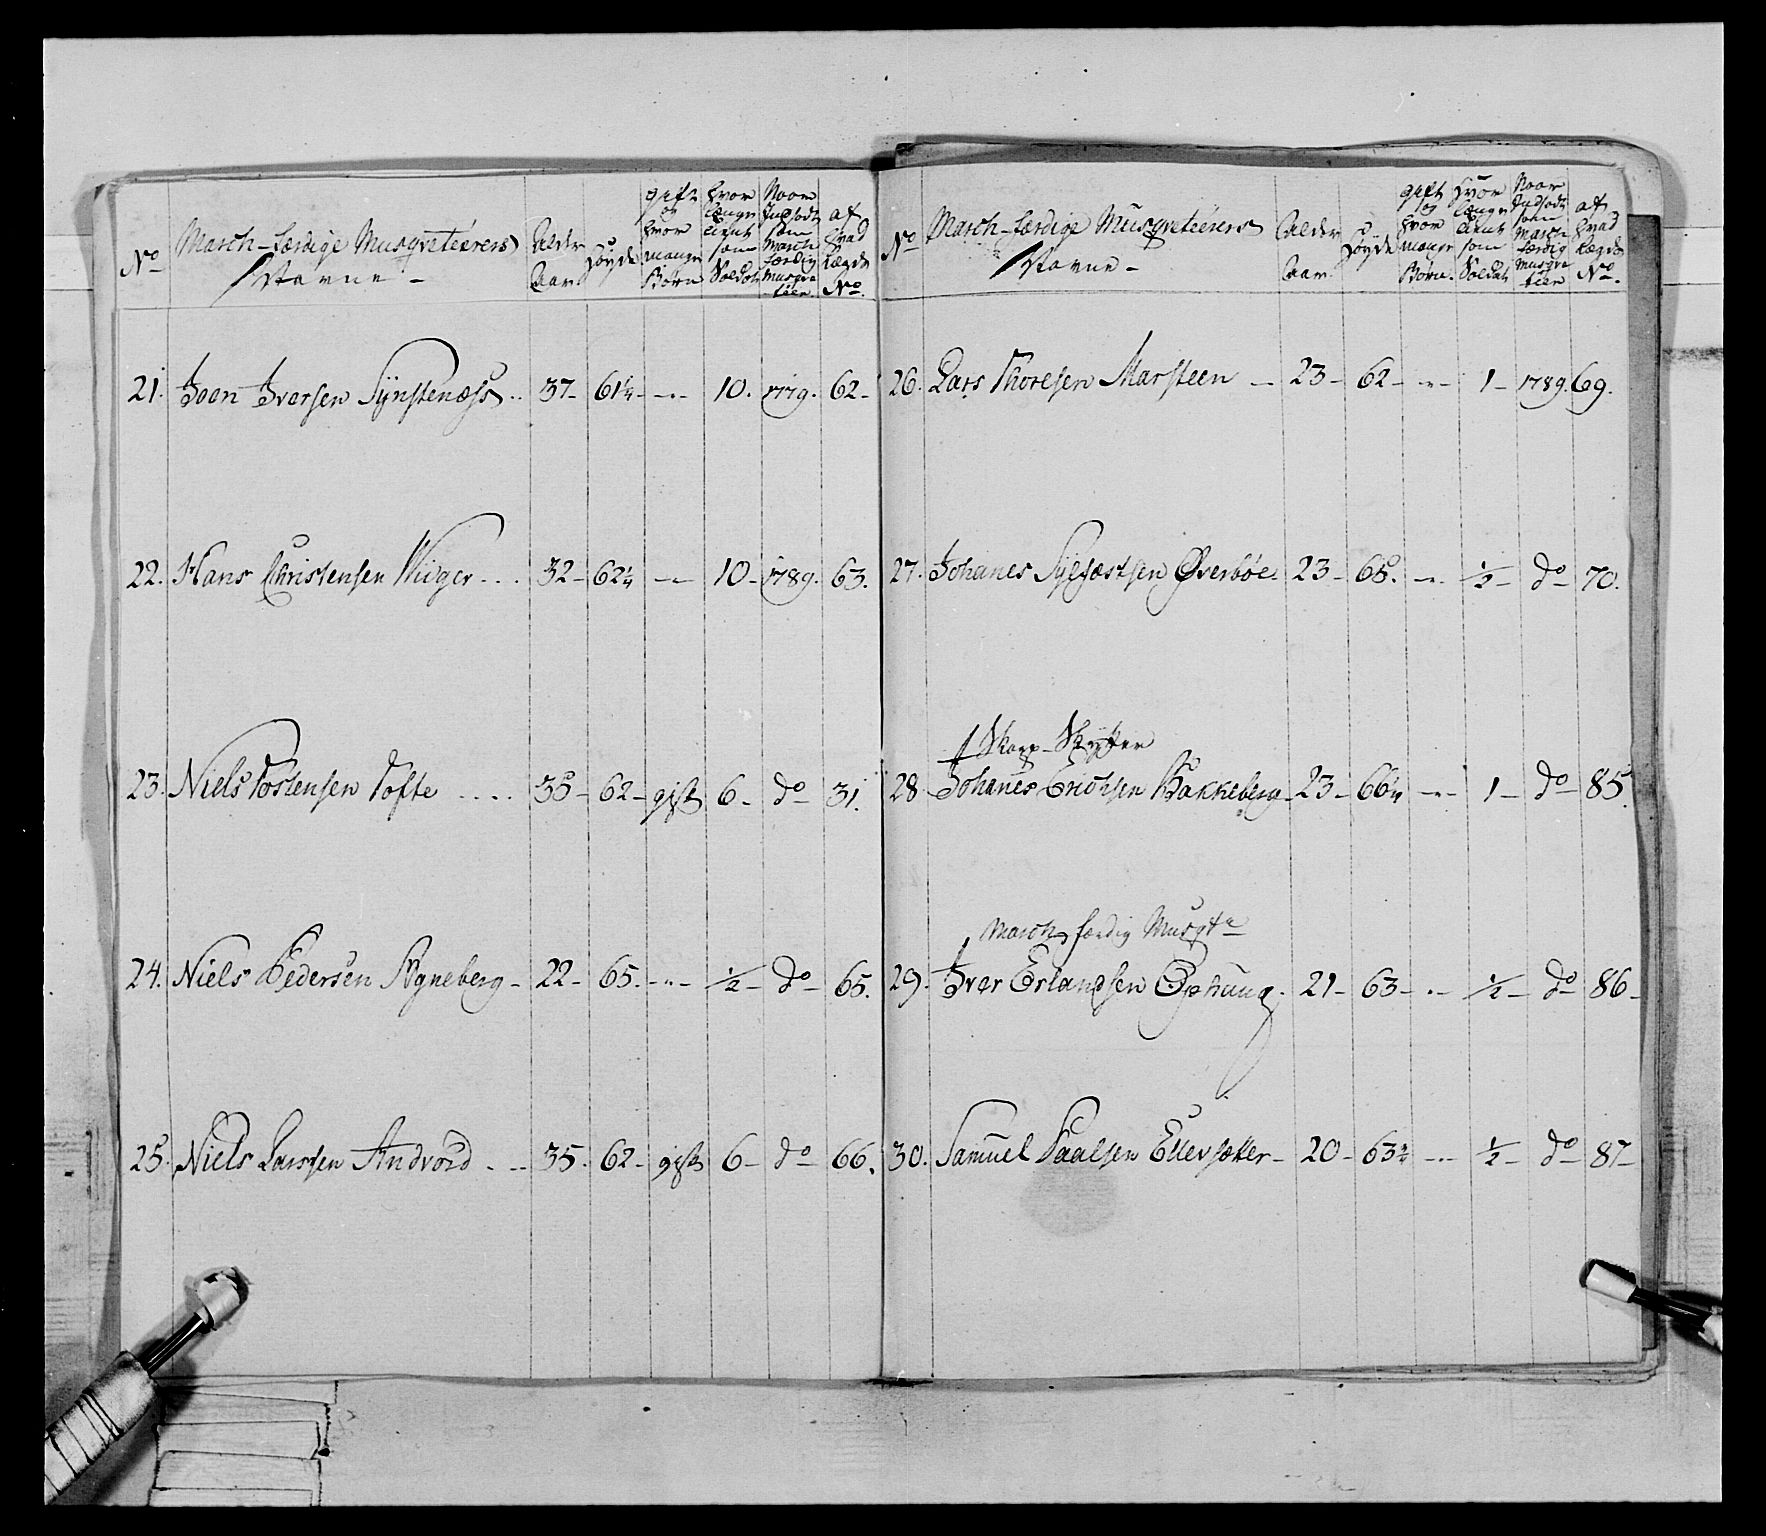 No March-færdige Musqveteerers Navne - Alder Aar Høyde gift og hvor mange Børn hvor længe tient som Soldat Naar Indsadt som March færdig Musqve-teer af hvad Lægds No.
21. Joen Iversen Synstenæss .. 37- 61¼- -.- 10. 1779. 62-
22. Hans Christensen Wiiger ... 32- 62¼ -.- 10- 1789. 63.
23. Niels Tostensen Tofte .... 35- 62- gift 6- do 31.
24. Niels Pedersen Aygneberg - 22- 65. -.- ½- do 65.
25. Niels Larssen Andvord ... 35. 62- gift 6- do 66.
No March-færdige Musqveteerers Navne - Alder Aar Høyde gift og hvor mange Børn. Hvor længe tient som Soldat Naar Indsadt som March færdig Musqve-teer af hvad Lægds No.
26. Lars Thoresen Marsteen - 23- 62- -.- 1- 1789. 69.
27. Johanes Sylfæstsen Øverbøe 23- 65. -.- ½- do 70.
Skarp-Skytter
28 Johanes Erichsen Bakkeberg- 23- 66¼ -.- 1- do 85.
March færdig Musqt
29. Iver Erlandsen Ophuug. 21- 63- .- ½- do 86-
30. Samuel Paalsen Ellevsætter- 20- 63¾ -.- ½- do 87-